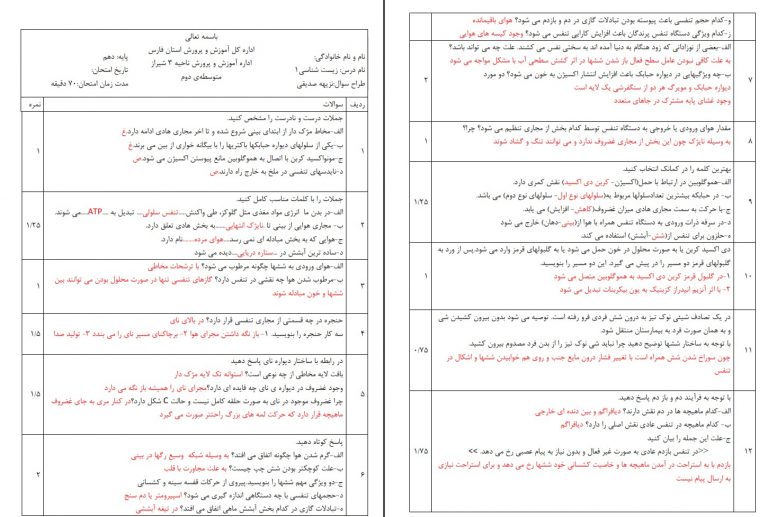 باسمه تعالی
اداره کل آموزش و پرورش استان فارس
اداره آموزش و پرورش ناحیه ۳ شیراز
متوسطه‌ی دوم
نام و نام خانوادگی:
نام درس: زیست شناسی۱
طراح سوال:نزیهه صدیقی
پایه: دهم
تاریخ امتحان:
مدت زمان امتحان:۷۰ دقیقه
ردیف
سوالات
نمره
۱
جملات درست و نادرست را مشخص کنید.
الف-مخاط مژک دار از ابتدای بینی شروع شده و تا آخر مجاری هادی ادامه دارد.غ
ب-یکی از سلولهای دیواره حبابکها باکتریها را با بیگانه خواری از بین می برند.غ
ج-مونواکسید کربن با اتصال به هموگلوبین مانع پیوستن اکسیژن می شود.ص
د-نایدیسهای تنفسی در ملخ به خارج راه دارند.ص
۱
۲
جملات را با کلمات مناسب کامل کنید.
الف-در بدن ما انرژی مواد مغذی مثل گلوکز، طی واکنش....تنفس سلولی.... تبدیل به ...ATP....می شوند.
ب- مجاری هوایی از بینی تا ..نایژک انتهایی......به بخش هادی تعلق دارد.
ج-هوایی که به بخش مبادله ای نمی رسد...هوای مرده......نام دارد.
د-ساده ترین آبشش در ...ستاره دریایی...دیده می شود
۱/۲۵
۳
الف-هوای ورودی به ششها چگونه مرطوب می شود؟ با ترشحات مخاطی
ب-مرطوب شدن هوا چه نقشی در تنفس دارد؟ گازهای تنفسی تنها در صورت محلول بودن می توانند بین
ششها و خون مبادله شوند
۱
۴
حنجره در چه قسمتی از مجاری تنفسی قرار دارد؟ در بالای نای
سه کار حنجره را بنویسید. ۱- باز نگه داشتن مجرای هوا ۲- برچاکنای مسیر نای را می بندد ۳- تولید صدا
۱/۵
۵
در رابطه با ساختار دیواره نای پاسخ دهید
بافت لایه مخاطی از چه نوعی است؟ استوانه تک لایه مژک دار
وجود غضروف در دیواره ی نای چه فایده ای دارد؟مجرای نای را همیشه باز نگه می دارد
چرا غضروف موجود در نای به صورت حلقه کامل نیست و حالت C شکل دارد؟در کنار مری به جای غضروف
ماهیچه قرار دارد که حرکت لقمه های بزرگ راحتتر صورت می گیرد
۱/۵
۶
پاسخ کوتاه دهید.
الف-گرم شدن هوا چگونه اتفاق می افتد؟ به وسیله شبکه وسیع رگها در بینی
ب-علت کوچکتر بودن شش چپ چیست؟ به علت مجاورت با قلب
ج-دو ویژگی مهم ششها را بنویسید.پیروی از حرکات قفسه سینه و کشسانی
د-حجمهای تنفسی با چه دستگاهی اندازه گیری می شود؟ اسپیرومتر یا دم سنج
ه-تبادلات گازی در کدام بخش آبشش ماهی اتفاق می افتد؟ در تیغه آبششی
۲
و-کدام حجم تنفسی باعث پیوسته بودن تبادلات گازی در دم و بازدم می شود؟ هوای باقیمانده
ز-کدام ویژگی دستگاه تنفس پرندگان باعث افزایش کارایی تنفس می شود؟ وجود کیسه های هوایی
۷
الف-بعضی از نوزاداتی که زود هنگام به دنیا آمده اند به سختی نفس می کشند. علت چه می تواند باشد؟
به علت کافی نبودن عامل سطح فعال باز شدن ششها در اثر کشش سطحی آب با مشکل مواجه می شود
ب-چه ویژگیهایی در دیواره حبابک باعث افزایش انتشار اکسیژن به خون می شود؟ دو مورد
دیواره حبابک و مویرگ هر دو از سنگفرشی یک لایه است
وجود غشای پایه مشترک در جاهای متعدد
۲
۸
مقدار هوای ورودی یا خروجی به دستگاه تنفس توسط کدام بخش از مجاری تنظیم می شود؟ چرا؟
به وسیله نایژک چون این بخش از مجاری غضروف ندارد و می توانند تنگ و گشاد شوند
۱
۹
بهترین کلمه را در کمانک انتخاب کنید.
الف-هموگلوبین در ارتباط با حمل(اکسیژن- کربن دی اکسید) نقش کمری دارد.
ب- در حبابکه بیشترین تعدادسلولها مربوط به(سلولهای نوع اول- سلولهای نوع دوم) می باشد.
ج-با حرکت به سمت مجاری هادی میزان غضروف(کاهش- افزایش) می یابد.
د-در سرفه ذرات ورودی به دستگاه تنفس همراه با هوا از(بینی-دهان) خارج می شود
ه-حلزون برای تنفس از(شش-آبشش) استفاده می کند.
۱/۲۵
۱۰
دی اکسید کربن یا به صورت محلول در خون حمل می شود یا به گلبولهای قرمز وارد می شود.پس از ورد به
گلبولهای قرمز دو مسیر را در پیش می گیرد. این دو مسیر را بنویسید.
۱-در گلبول قرمز کربن دی اکسید به هموگلوبین متصل می شود
۲-با اثر آنزیم انیدراز کربنیک به یون بیکربنات تبدیل می شود
۱
۱۱
در یک تصادف شیئی نوک تیز به درون شش فردی فرو رفته است. توصیه می شود بدون بیرون کشیدن شی
و به همان صورت فرد به بیمارستان منتقل شود.
با توجه به ساختار ششها توضیح دهید چرا نباید شی نوک تیز را از بدن فرد مصدوم بیرون کشید.
چون سوراخ شدن شش همراه است با تغییر فشار درون مایع جنب و روی هم خوابیدن ششها و اشکال در
تنفس
۰/۷۵
۱۲
با توجه به فرآیند دم و باز دم پاسخ دهید.
الف-کدام ماهیچه ها در دم نقش دارند؟ دیافراگم و بین دنده ای خارجی
ب-کدام ماهیچه در تنفس عادی نقش اصلی را دارد؟ دیافراگم
ج-علت این جمله را بیان کنید
<<در تنفس بازدم عادی به صورت غیر فعال و بدون نیاز به پیام عصبی رخ می دهد. >>
بازدم با به استراحت در آمدن ماهیچه ها و خاصیت کشسانی خود ششها رخ می دهد و برای استراحت نیازی
به ارسال پیام نیست
۱/۷۵